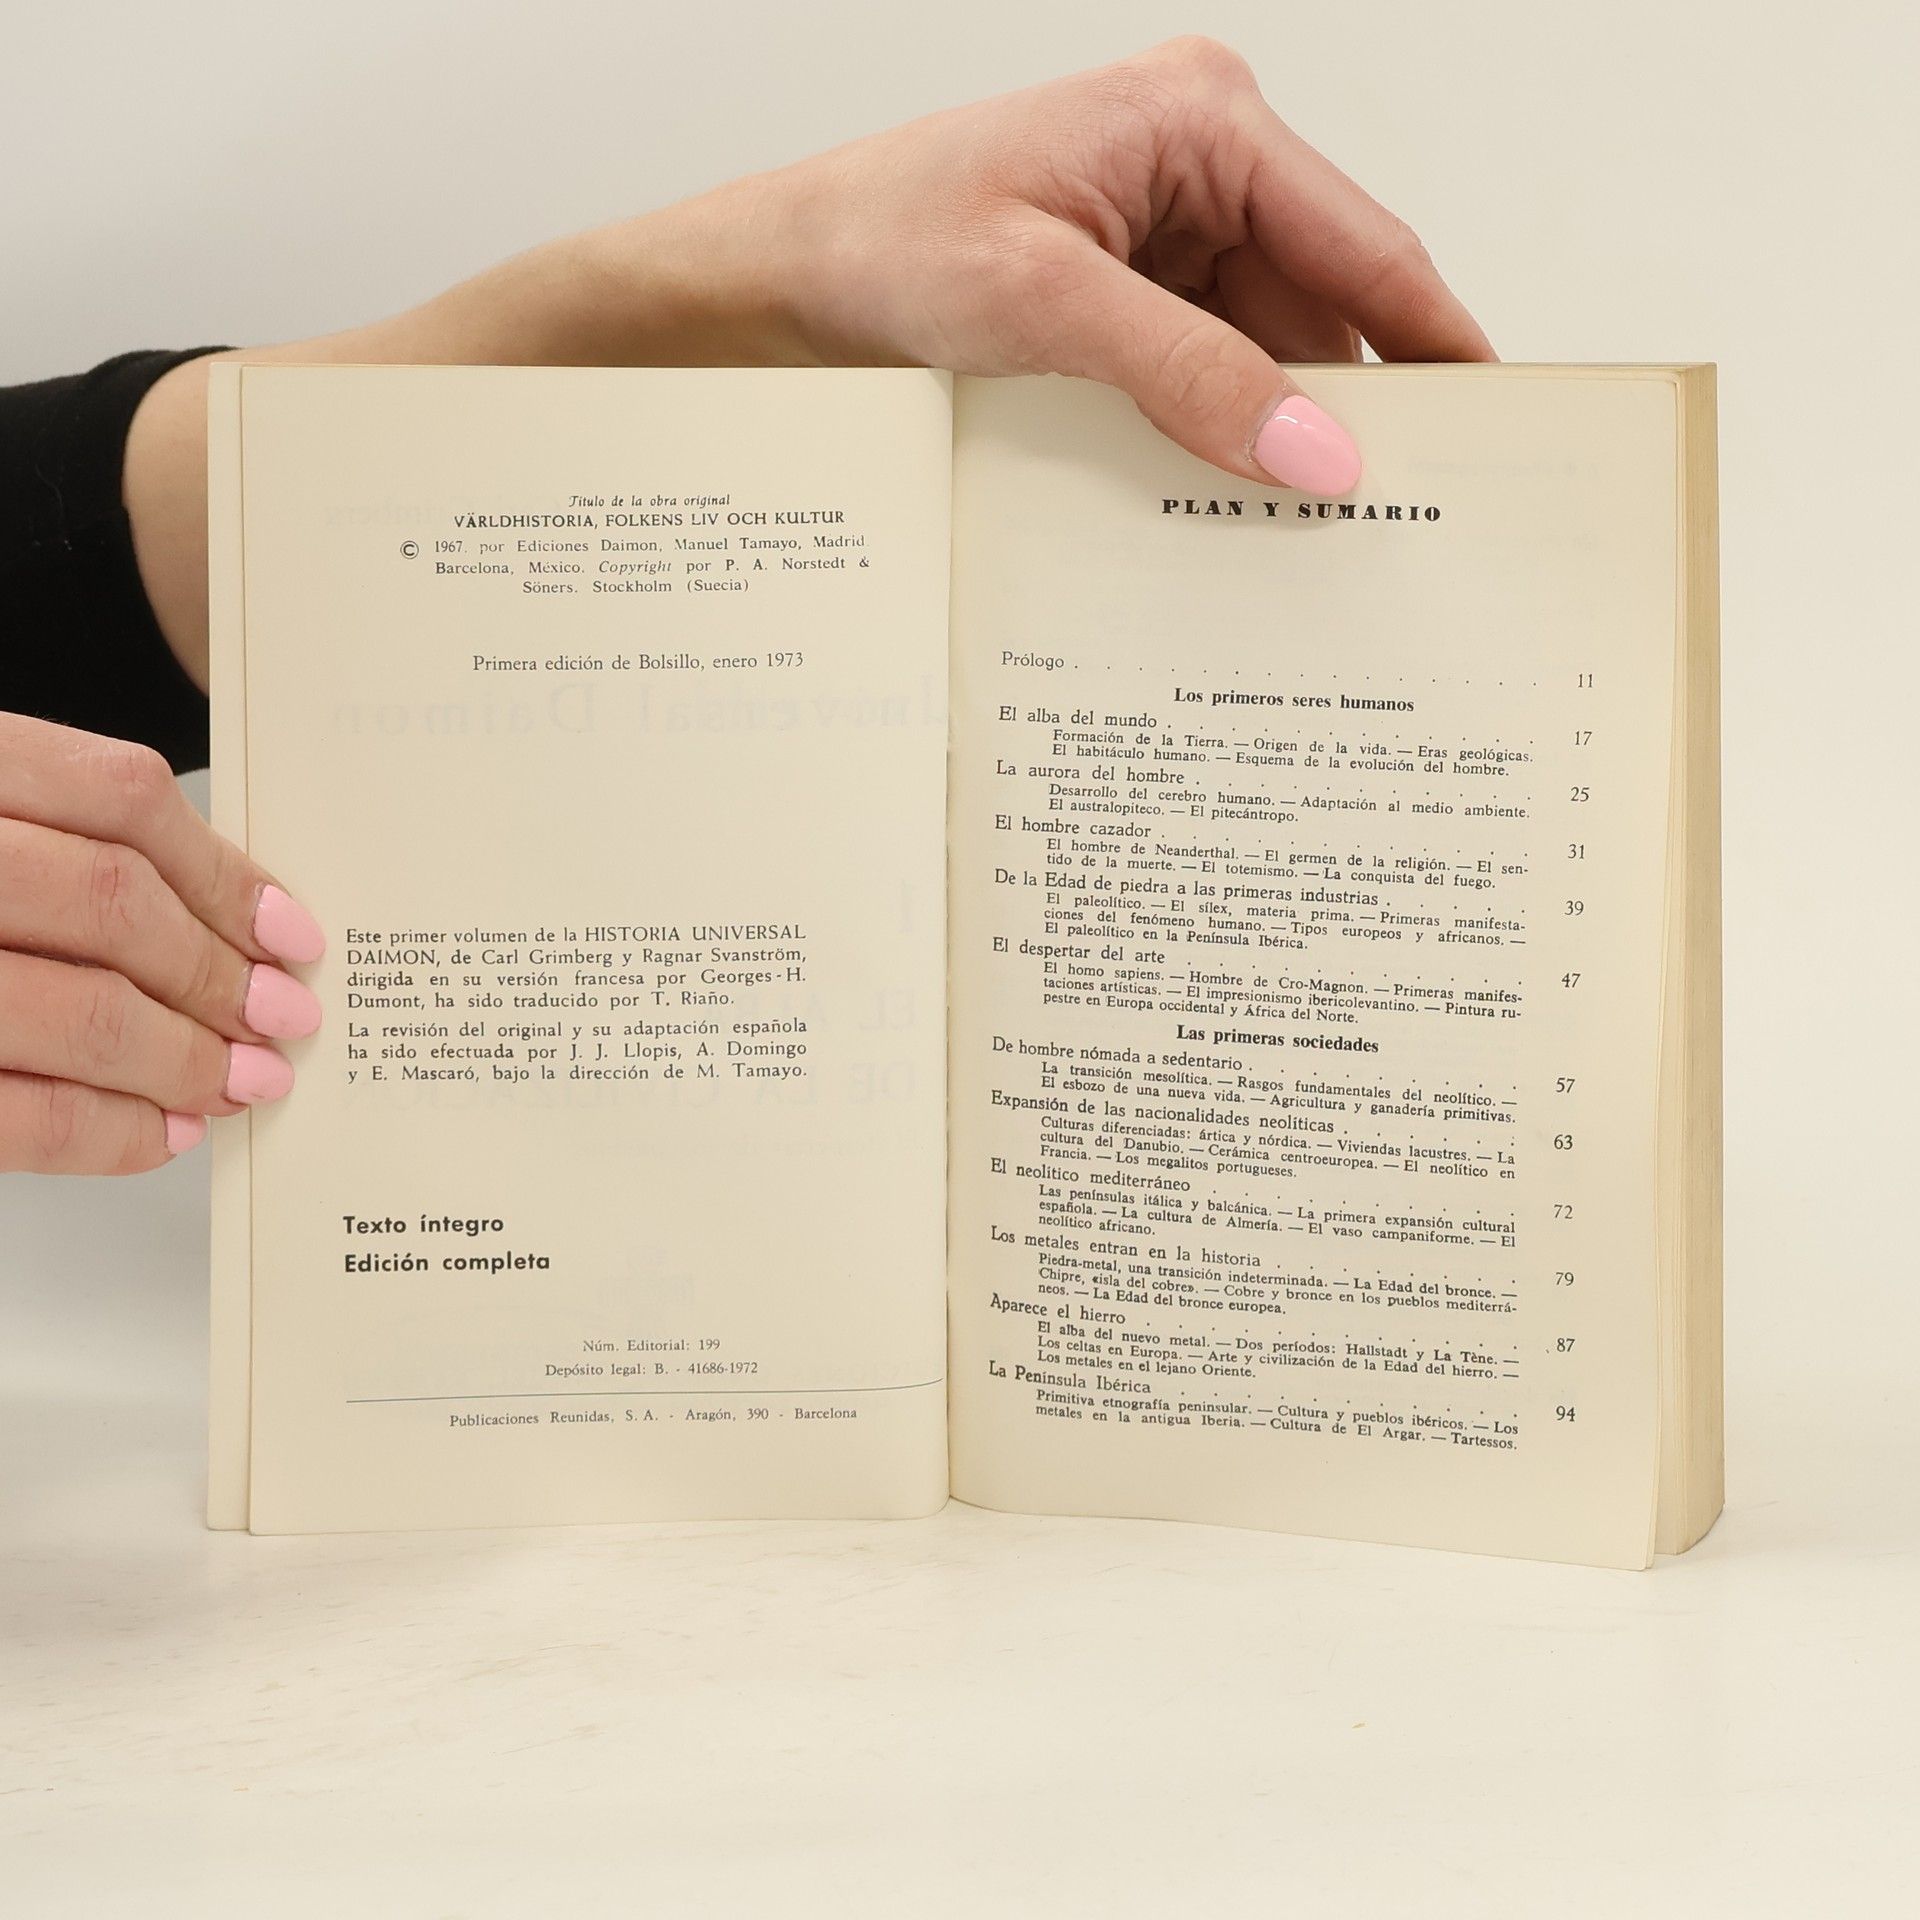 Título de la obra original
VÄRLDHISTORIA, FOLKENS LIV OCH KULTUR
© 1967. por Ediciones Daimon, Manuel Tamayo, Madrid.
Barcelona, México. Copyright por P. A. Norstedt &
Söners. Stockholm (Suecia)
Primera edición de Bolsillo, enero 1973
Este primer volumen de la HISTORIA UNIVERSAL
DAIMON, de Carl Grimberg y Ragnar Svanström,
dirigida en su versión francesa por Georges-H.
Dumont, ha sido traducido por T. Riaño.
La revisión del original y su adaptación española
ha sido efectuada por J. J. Llopis, A. Domingo
y E. Mascaró, bajo la dirección de M. Tamayo.
Texto íntegro
Edición completa
Núm. Editorial: 199
Depósito legal: B. - 41686-1972
Publicaciones Reunidas, S. A. - Aragón, 390 - Barcelona
PLAN Y SUMARIO
Prólogo . . . . . . . . . . . . . . . 11
Los primeros seres humanos
El alba del mundo . . . . . . . . . . . . 17
Formación de la Tierra. — Origen de la vida. — Eras geológicas.
El habitáculo humano. — Esquema de la evolución del hombre.
La aurora del hombre . . . . . . . . . . . 25
Desarrollo del cerebro humano. — Adaptación al medio ambiente.
El australopiteco. — El pitecántropo.
El hombre cazador . . . . . . . . . . . . 31
El hombre de Neanderthal. — El germen de la religión. — El sen-
tido de la muerte. — El totemismo. — La conquista del fuego.
De la Edad de piedra a las primeras industrias . . . . . 39
El paleolítico. — El sílex, materia prima. — Primeras manifesta-
ciones del fenómeno humano. — Tipos europeos y africanos. —
El paleolítico en la Península Ibérica.
El despertar del arte . . . . . . . . . . . 47
El homo sapiens. — Hombre de Cro-Magnon. — Primeras manifes-
taciones artísticas. — El impresionismo ibericolevantino. — Pintura ru-
pestre en Europa occidental y África del Norte.
Las primeras sociedades
De hombre nómada a sedentario . . . . . . . . . 57
La transición mesolítica. — Rasgos fundamentales del neolítico. —
El esbozo de una nueva vida. — Agricultura y ganadería primitivas.
Expansión de las nacionalidades neolíticas . . . . . . 63
Culturas diferenciadas: ártica y nórdica. — Viviendas lacustres. — La
cultura del Danubio. — Cerámica centroeuropea. — El neolítico en
Francia. — Los megalitos portugueses.
El neolítico mediterráneo . . . . . . . . . . 72
Las penínsulas itálica y balcánica. — La primera expansión cultural
española. — La cultura de Almería. — El vaso campaniforme. — El
neolítico africano.
Los metales entran en la historia . . . . . . . . 79
Piedra-metal, una transición indeterminada. — La Edad del bronce. —
Chipre, «isla del cobre». — Cobre y bronce en los pueblos mediterrá-
neos. — La Edad del bronce europea.
Aparece el hierro . . . . . . . . . . . . 87
El alba del nuevo metal. — Dos períodos: Hallstadt y La Tène. —
Los celtas en Europa. — Arte y civilización de la Edad del hierro. —
Los metales en el lejano Oriente.
La Península Ibérica . . . . . . . . . . . 94
Primitiva etnografía peninsular. — Cultura y pueblos ibéricos. — Los
metales en la antigua Iberia. — Cultura de El Argar. — Tartessos.